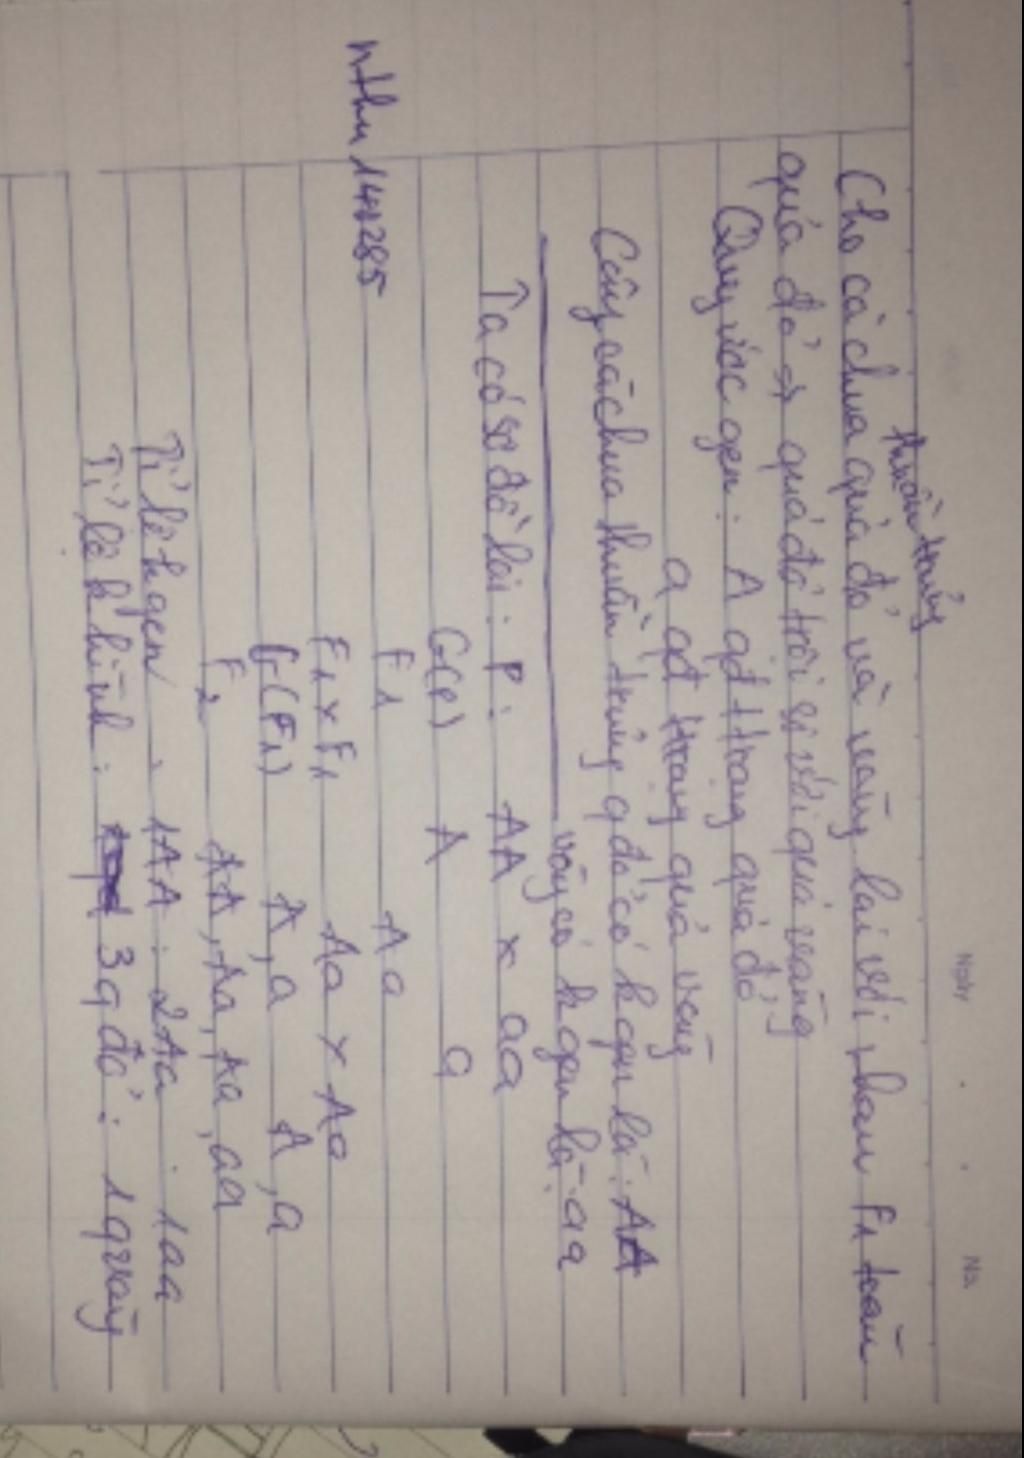 Ngày . . No.
thuần chủng
Cho cà chua quả đỏ và vàng lai với nhau F1 toàn
quả đỏ => quả đỏ trội so với quả vàng
Quy ước gen: A qđ t trạng quả đỏ
a qđ ttrạng quả vàng
Cây cà chua thuần chủng q đỏ có k gen là: AA
vàng có k gen là: aa
Ta có sơ đồ lai: P: AA x aa
G(P) A a
F1 Aa
nthu 141285
F1 x F1 Aa x Aa
G(F1) A, a A, a
F2 AA, Aa, Aa, aa
Tỉ lệ k gen: 1AA : 2Aa : 1aa
Tỉ lệ k hình: 3q đỏ : 1q vàng